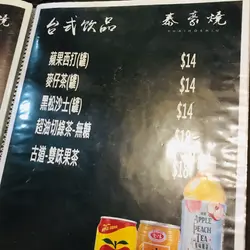 台式饮品
泰豪燒
蘋果西打(罐) $14
麥仔茶(罐) $14
黑松沙士(罐) $14
超油切綠茶-無糖 $18
古道-雙味果茶 $18
APPLE
PEACH
TEA